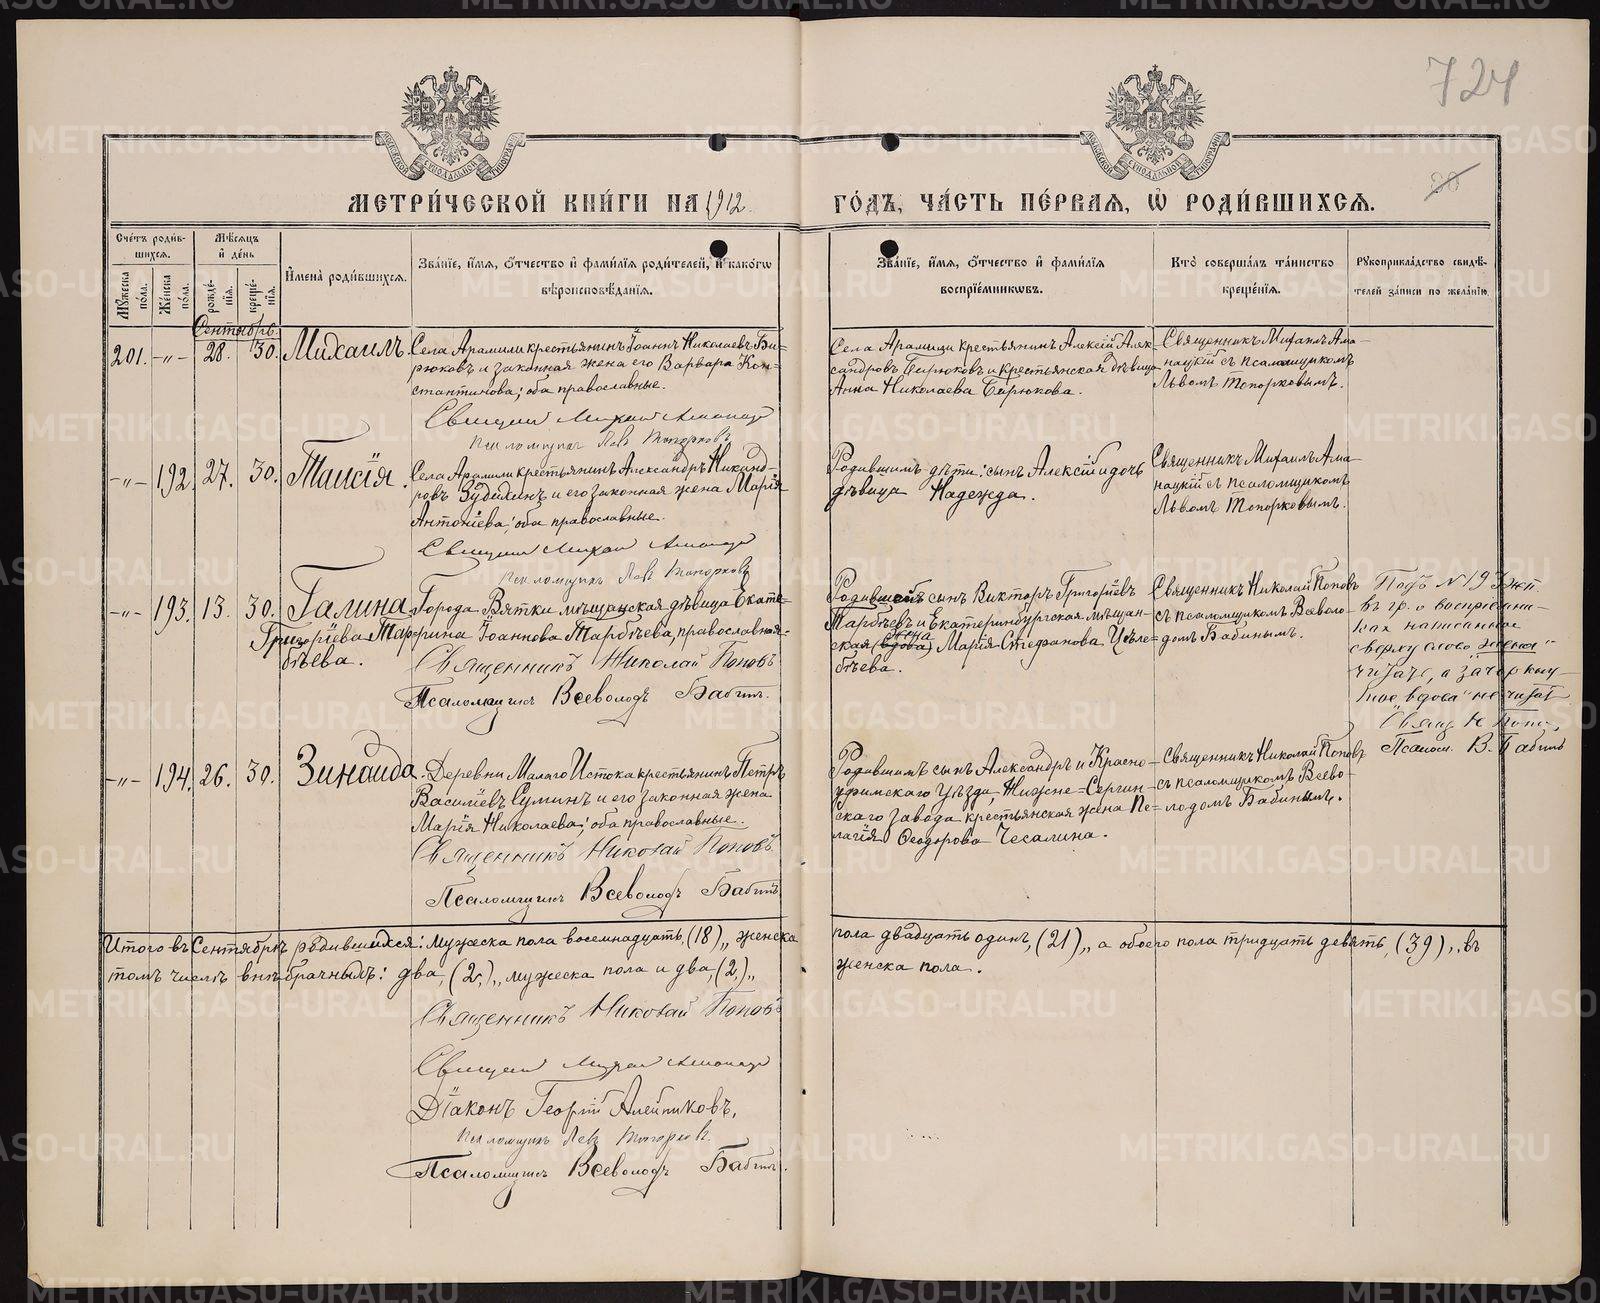 724
МЕТРИ́ЧЕСКОЙ КНИ́ГИ НА 1912
ГО́ДЪ, ЧА́СТЬ ПЕ́РВАЯ, Ѡ РОДИ́ВШИХСЯ.
Сче́тъ роди́вшихся.
Мѣ́сяцъ и де́нь
Му́жеска по́ла.
Же́нска по́ла.
рожде́нія.
креще́нія.
И҆мена̀ роди́вшихся.
Зва́ніе, и҆́мя, ѻ҆́тчество и҆ фами́лія роди́телей, и҆ како́гѡ
вѣроисповѣ́данія.
Зва́ніе, и҆́мя, ѻ҆́тчество и҆ фами́лія
воспріе́мниковъ.
Кто̀ соверша́лъ та́инство
креще́нія.
Рукоприкла́дство свидѣ́-
телей за́писи по жела́нію.
Сентябрь.
201. -„- 28. 30. Михаилъ.
Села Арамили крестьянинъ Іоаннъ Николаевъ Би-
рюковъ и законная жена его Варвара Кон-
стантинова; оба православные.
Псаломщикъ Левъ Топорковъ
Села Арамили крестьянинъ Алексій Алек-
сандровъ Бирюковъ и крестьянская дѣвица
Анна Николаева Бирюкова.
Священникъ Михаилъ Ама-
нацкій съ псаломщикомъ
Львомъ Топорковымъ.
-„- 192. 27. 30. Таисія.
Села Арамили крестьянинъ Александръ Никанд-
ровъ Зубакинъ и его законная жена Марія
Антоніева; оба православные.
Псаломщикъ Левъ Топорковъ
Родившимъ дѣти: сынъ Алексій и дочь
дѣвица Надежда.
Священникъ Михаилъ Ама-
нацкій съ псаломщикомъ
Львомъ Топорковымъ.
-„- 193. 13. 30. Галина
Григоріева Тар-
бѣева.
Города Вятки мѣщанская дѣвица Екате-
рина Іоаннова Тарбѣева, православная.
Священникъ Николай Поповъ
Псаломщикъ Всеволодъ Бабинъ.
Родившей сынъ Викторъ Григоріевъ
Тарбѣевъ и Екатеринбургская мѣщан-
жена
ская (вдова) Марія Стефанова Цѣле-
бѣева.
Священникъ Николай Поповъ
съ псаломщикомъ Всеволо-
домъ Бабинымъ.
Подъ № 193 жен.
въ гр. о воспріемни-
кахъ написанное
сверху слово „жена"
читать, а зачеркну-
тое „вдова" не читать
Свящ. Н. Попов,
Псалом. В. Бабинъ
-„- 194. 26. 30. Зинаида.
Деревни Малаго Истока крестьянинъ Петръ
Василіевъ Суминъ и его законная жена
Марія Николаева; оба православные.
Священникъ Николай Поповъ.
Псаломщикъ Всеволодъ Бабинъ
Родившимъ сынъ Александръ и Красно-
уфимскаго уѣзда, Нижне-Сергин-
скаго завода крестьянская жена Пе-
лагія Ѳеодорова Чесалина.
Священникъ Николай Поповъ
съ псаломщикомъ Всево-
лодомъ Бабинымъ.
Итого въ Сентябрѣ родившихся: мужеска пола восемнадцать, (18)„ женска
пола двадцать одинъ, (21)„ а обоего пола тридцать девять, (39)„ въ
томъ числѣ внѣбрачныхъ: два, (2,)„ мужеска пола и два, (2,)„
женска пола.
Священникъ Николай Поповъ
Діаконъ Георгій Алейниковъ.
Псаломщикъ Левъ Топорков.
Псаломщикъ Всеволодъ Бабинъ.
METRIKI.GASO-URAL.RU